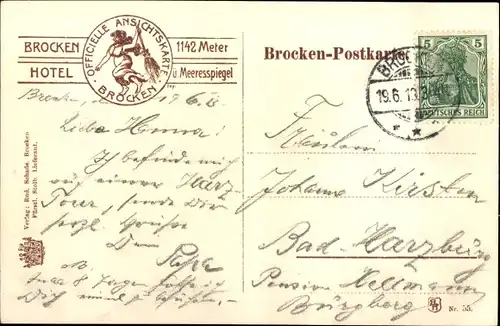 BROCKEN
HOTEL
OFFICIELLE ANSICHTSKARTE
BROCKEN
1142 Meter
ü. Meeresspiegel
Brocken-Postkarte
5 5
DEUTSCHES REICH
19.6.13
Liebe Hanna!
Ich befinde mich
auf einer Harz-
Tour, sende Dir
herzl. Grüße
Dein
Papa
Dich
Fräulein
Johanna Kirsten
Bad-Harzburg
Pension Hellmann
Burgberg
Verlag: Rud. Schade, Brocken
Fürstl. Stolb. Lieferant.
Nr. 55.